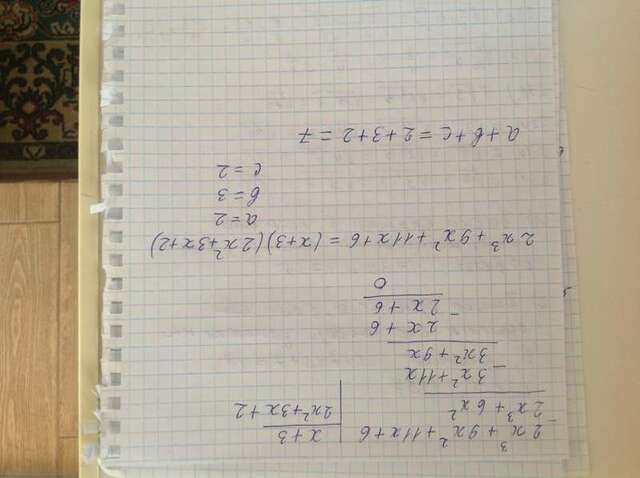 - 2x³ + 9x² + 11x + 6 | x + 3
2x³ + 6x² | 2x² + 3x + 2
- 3x² + 11x
3x² + 9x
- 2x + 6
2x + 6
0
2x³ + 9x² + 11x + 6 = (x + 3)(2x² + 3x + 2)
a = 2
b = 3
c = 2
a + b + c = 2 + 3 + 2 = 7